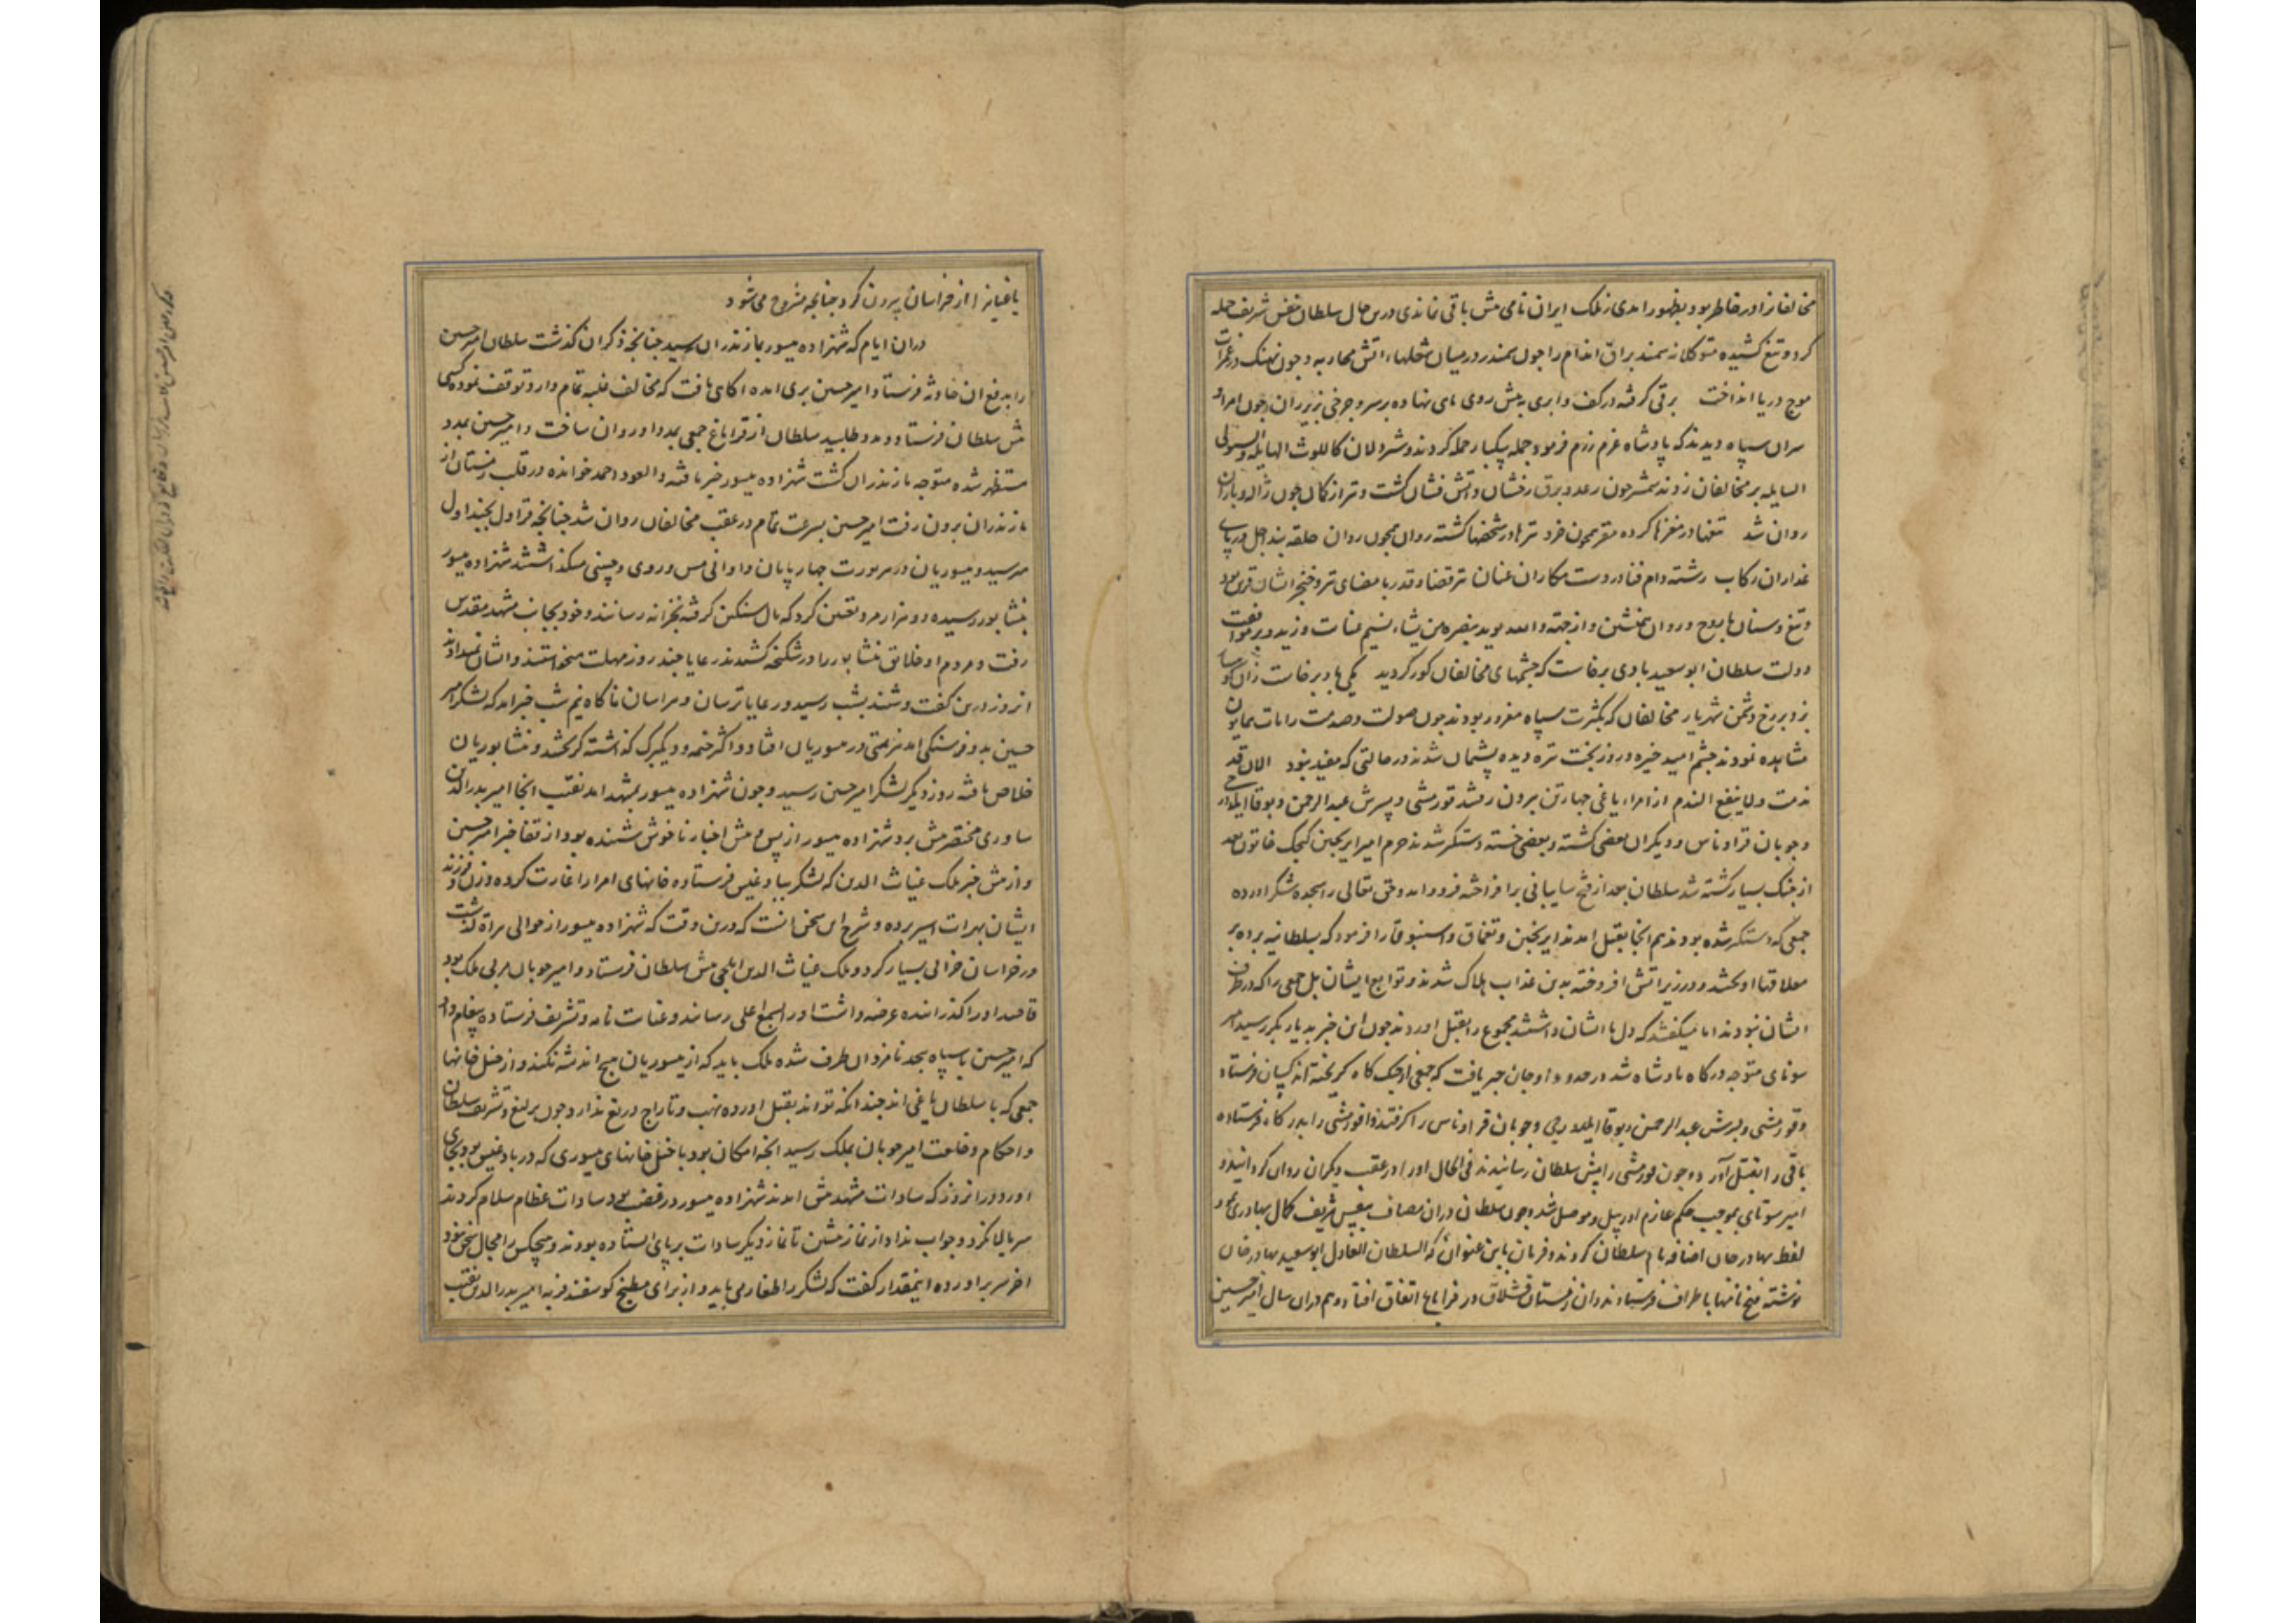 مخالفانرا در خاطر بود بظهور امدی از ملک ایران نامی بیش باقی نماندی درین حال سلطان بنفس شریف حمله
کرد و تیغ کشیده متوکلانه سمند براق اندام را چون سمندر در میان شعلهاء اتش محاربه و چون نهنک در غمرات
موج دریا انداخت برقی گرفته در کف و ابری به پیش روی ماهی نهاده بر سر و چرخی بزیر ران چون امرا و
سران سپاه دیدند که پادشاه عزم رزم فرمود جمله بیکبار حمله کردند و شیردلان کاللیوث الهایله والسیول
السایله بر مخالفان زدند شمشیر چون رعد و برق رخشان و اتش فشان کشت و تیر از کمان چون ژاله و باران
روان شد تیغها در مغزها کرده مقر همچون خرد تیرها در شخصها کشته روان همچون روان حلقه بند اجل در پای
غداران رکاب رشته دام فنا در دست مکاران عنان تیر قضا و قدر با مضای تیر و خنجر ایشان قرین بود
و تیغ و سنان با روح و روان همنشین و از جهت والله یوید بنصره من یشاء نسیم عنایت وزید و بر موافقت
دولت سلطان ابو سعید بادی برخاست که چشمهای مخالفان کور کردید یکی باد برخاست زان
بزد بر رخ دشمن شهریار مخالفان که بکثرت سپاه مغرور بودند چون صولت و صدمت رایات همایون
مشاهده نمودند چشم امید خیره و روز بخت تیره دیده پشیمان شدند در حالتی که مفید نبود الان قد
ندمت و لا ینفع الندم از امراء یاغی چهار تن بیرون رفتند قورمشی و پسرش عبد الرحمن و بوقا ایلدارجی
و چوبان قراوناس و دیکران بعضی کشته و بعضی خسته و دستگیر شدند حرم امیر ایرنجین کنجک خاتون بعد
از جنک بسیار کشته شد سلطان بعد از فتح سایبانی برافراخته فرود امد و حق تعالی را سجده شکر اورده
جمعی که دستکیر شده بودند هم انجا بقتل امدند ایرنجین و تقماق و اسنبوقا را فرمود که بسلطانیه برده بر
معلاقها اویخشد و در زیر اتش افروخته بدین عذاب هلاک شدند و توابع ایشان بل جمعی را که در طرف
ایشان نبودند اما میکفتند که دل با ایشان داشتند مجموع را بقتل اوردند چون این خبر بدیار بکر رسید امیر
سوتای متوجه درکاه پادشاه شد در حدود اوجان خبر یافت که جمعی از جنک کاه کریخته اند کسان فرستاد
و قورمشی و پسرش عبد الرحمن و بوقا ایلدارجی و چوبان قراوناس را کرفتند و قورمشی را بدرکاه فرستاده
باقی را بقتل آورد و چون قورمشی را پیش سلطان رسانیدند فی الحال او را در عقب دیکران روان کردانیدند و
امیر سوتای بموجب حکم عازم اردبیل و موصل شد و چون سلطان دران مصاف بنفس شریف کمال بهادری نمود
لفظ بهادر خان اضافه نام سلطان کردند و فرمان باین عنوان که السلطان العادل ابو سعید بهادر خان
نوشته فتح نامها باطراف فرستادند و ان زمستان قشلاق در قراباغ اتفاق افتاد و هم دران سال امیر حسین
یاغیانرا از خراسان بیرون کرد چنانچه مشروح می شود
دران ایام که شهزاده میسور بمازندران رسید چنانچه ذکر ان کذشت سلطان امیر حسین
را بدفع ان حادثه فرستاد و امیر حسین بری امده اکاهی یافت که مخالف غلبه تمام دارد توقف نموده کسی
پیش سلطان فرستاد و مدد طلبید سلطان از قراباغ جمعی بمدد او روان ساخت و امیر حسین بمدد
مستظهر شده متوجه مازندران کشت شهزاده میسور خبر یافته و العود احمد خوانده در قلب زمستان از
مازندران بیرون رفت امیر حسین بسرعت تمام در عقب مخالفان روان شد چنانچه قراول بجنداول
میرسید و میسوریان در هر یورت چهارپایان و اوانی مس و روی و چینی میکذاشتند شهزاده میسور
بنشابور رسیده دو هزار مرد تعیین کرد که مال سنکین کرفته بخزانه رسانند و خود بجانب مشهد مقدس
رفت و مردم او خلایق نشابور را در شکنجه کشیدند رعایا چند روز مهلت میخواستند و ایشان نمیدادند
انروز درین کفت و شنید بشب رسید و رعایا ترسان و هراسان ناکاه نیم شب خبر امد که لشکر امیر
حسین بدو فرسنکی امد هزیمتی در میسوریان افتاد و اکثر خیمه و دیک برک کذاشته کریختند و نشابوریان
خلاص یافته روز دیکر لشکر امیر حسین رسید و چون شهزاده میسور بمشهد امد نقیب انجا امیر بدرالدین
ساوری مختصر پیش برد شهزاده میسور از پس و پیش اخبار ناخوش شنیده بود از قفا خبر امیر حسین
و از پیش خبر ملک غیاث الدین که لشکر ببادغیس فرستاده خانهای امرا را غارت کرده و زن و فرزند
ایشان بهرات اسیر برده و شرح این سخن انست که درین وقت که شهزاده میسور از حوالی هراة کذشت
در خراسان خرابی بسیار کرد و ملک غیاث الدین ایلچی پیش سلطان فرستاد و امیر چوبان مربی ملک بود
قاصد او را کذرانیده عرضه داشت او را بسمع اعلی رسانید و عنایت نامه و تشریف فرستاده پیغام داد
که امیر حسین با سپاه بیحد نامزد ان طرف شده ملک باید که از میسوریان هیچ اندیشه نکند و از خیل خانها
جمعی که با سلطان یاغی اند چندانکه تواند بقتل اورده نهب و تاراج دریغ ندارد چون یرلیغ و تشریف سلطان
و احکام و خلعت امیر چوبان بملک رسید انچه امکان بود با خیل خانهای میسوری که در بادغیس بود بجای
اورد و در انروز که سادات مشهد پیش امدند شهزاده میسور در غضب بود سادات عظام سلام کردند
سر بالا نکرد و جواب نداد از نماز پیشین تا نماز دیکر سادات بر پای ایستاده بودند و هیچکس را مجال سخن نبود
اخر سر براورده اینمقدار کفت که لشکر را طغار می باید و از برای مطبخ کوسفند فربه امیر بدرالدین نقیب